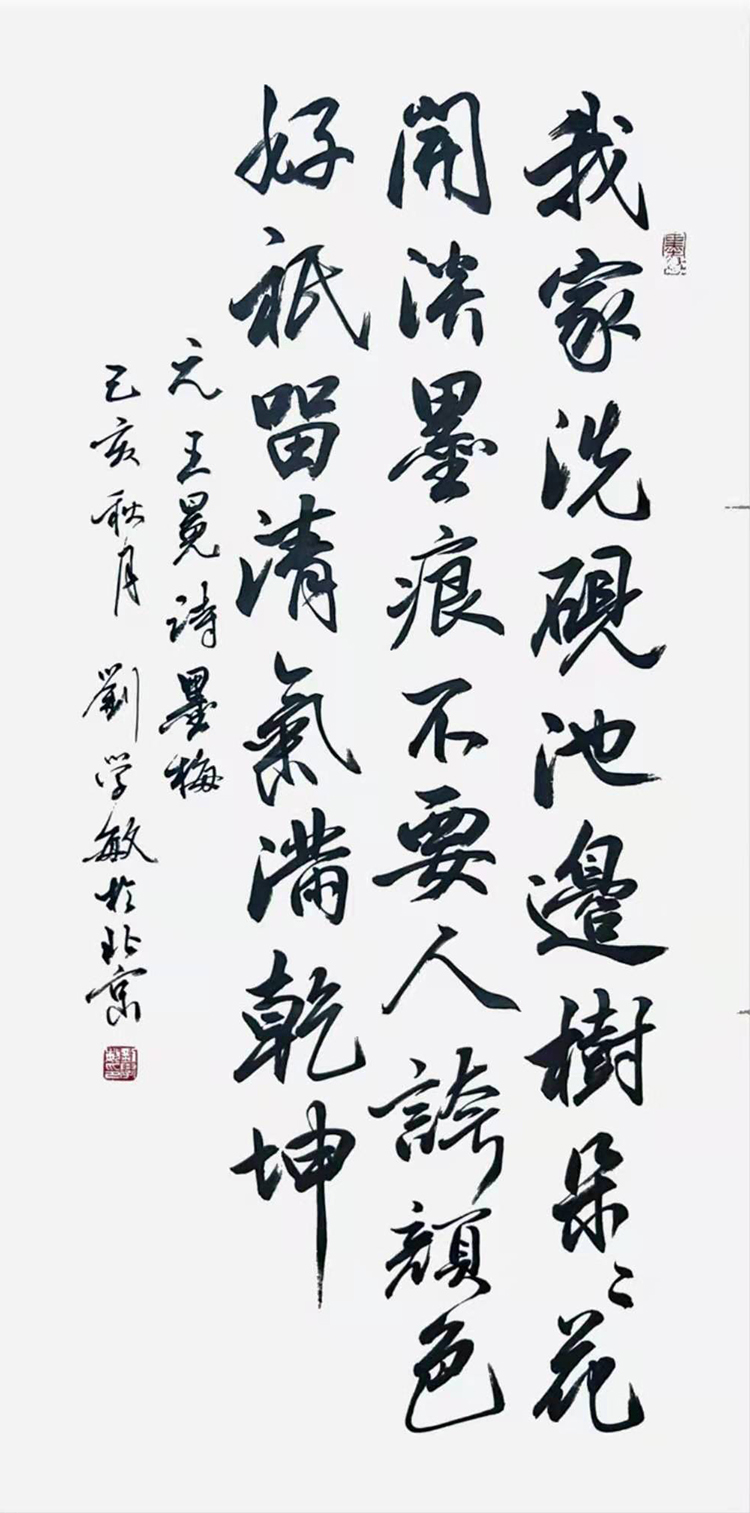 我家洗硯池邊樹朵〻花
開淡墨痕不要人誇顏色
好祇留清氣滿乾坤
元王冕詩墨梅
己亥秋月劉学敏於北京